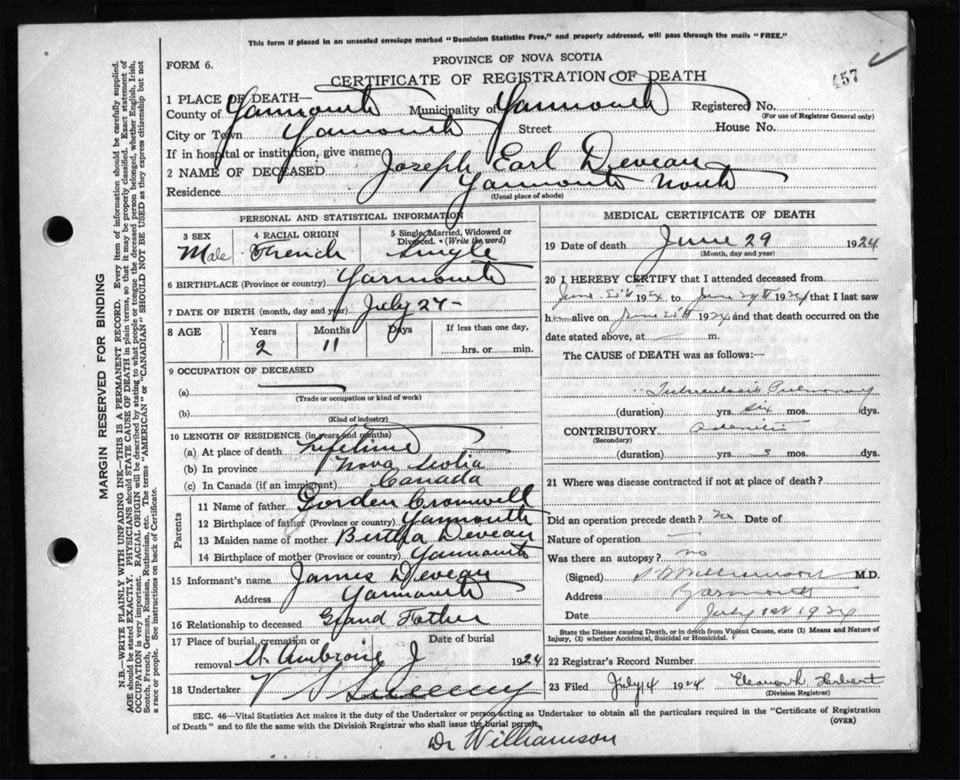 This form if placed in an unsealed envelope marked "Dominion Statistics Free," and properly addressed, will pass through the mails "FREE."
FORM 6.
PROVINCE OF NOVA SCOTIA
CERTIFICATE OF REGISTRATION OF DEATH
457
1 PLACE OF DEATH—
County of Yarmouth Municipality of Yarmouth Registered No.
(For use of Registrar General only)
City or Town Yarmouth Street House No.
If in hospital or institution, give name
2 NAME OF DECEASED Joseph Earl Deveau
Residence Yarmouth North
(Usual place of abode)
PERSONAL AND STATISTICAL INFORMATION
3 SEX 4 RACIAL ORIGIN 5 Single, Married, Widowed or Divorced. (Write the word)
Male French Single
6 BIRTHPLACE (Province or country) Yarmouth
7 DATE OF BIRTH (month, day and year) July 27-
8 AGE Years Months Days If less than one day,
2 11 hrs. or min.
9 OCCUPATION OF DECEASED
(a)
(Trade or occupation or kind of work)
(b)
(Kind of industry)
10 LENGTH OF RESIDENCE (in years and months)
(a) At place of death Lifetime
(b) In province Nova Scotia
(c) In Canada (if an immigrant) Canada
Parents
11 Name of father Gorden Cromwell
12 Birthplace of father (Province or country) Yarmouth
13 Maiden name of mother Bertha Deveau
14 Birthplace of mother (Province or country) Yarmouth
15 Informant's name James Deveau
Address Yarmouth
16 Relationship to deceased Grand Father
17 Place of burial, cremation or removal St Ambroise Date of burial J 1924
18 Undertaker V S Sweeney
MEDICAL CERTIFICATE OF DEATH
19 Date of death June 29 1924
(Month, day and year)
20 I HEREBY CERTIFY that I attended deceased from
June 1924 to June 1924 that I last saw
h alive on June 1924 and that death occurred on the
date stated above, at m.
The CAUSE of DEATH was as follows:—
Tuberculosis Pulmonary
(duration) yrs. six mos. dys.
CONTRIBUTORY
(Secondary)
(duration) yrs. mos. dys.
21 Where was disease contracted if not at place of death?
Did an operation precede death? Date of
Nature of operation
Was there an autopsy? no
(Signed) Williamson M.D.
Address Yarmouth
Date July 1st 1924
State the Disease causing Death, or in death from Violent Causes, state (1) Means and Nature of Injury, (2) whether Accidental, Suicidal or Homicidal.
22 Registrar's Record Number
23 Filed July 4 1924 Eleanor L. Herbert
(Division Registrar)
SEC. 46—Vital Statistics Act makes it the duty of the Undertaker or person acting as Undertaker to obtain all the particulars required in the "Certificate of Registration
of Death" and to file the same with the Division Registrar who shall issue the burial permit.
(OVER)
Dr Williamson
MARGIN RESERVED FOR BINDING
N.B.—WRITE PLAINLY WITH UNFADING INK—THIS IS A PERMANENT RECORD. Every item of information should be carefully supplied.
AGE should be stated EXACTLY. PHYSICIANS should STATE CAUSE OF DEATH in plain terms, so that it may be properly classified. Exact statement of
OCCUPATION is very important. RACIAL ORIGIN will be described by stating to what people or tongue the deceased person belonged, whether English, Irish,
Scotch, French, German, Russian, Ruthenian, etc. The terms "AMERICAN" or "CANADIAN" SHOULD NOT BE USED as they express citizenship but not
a race or people. See instructions on back of Certificate.